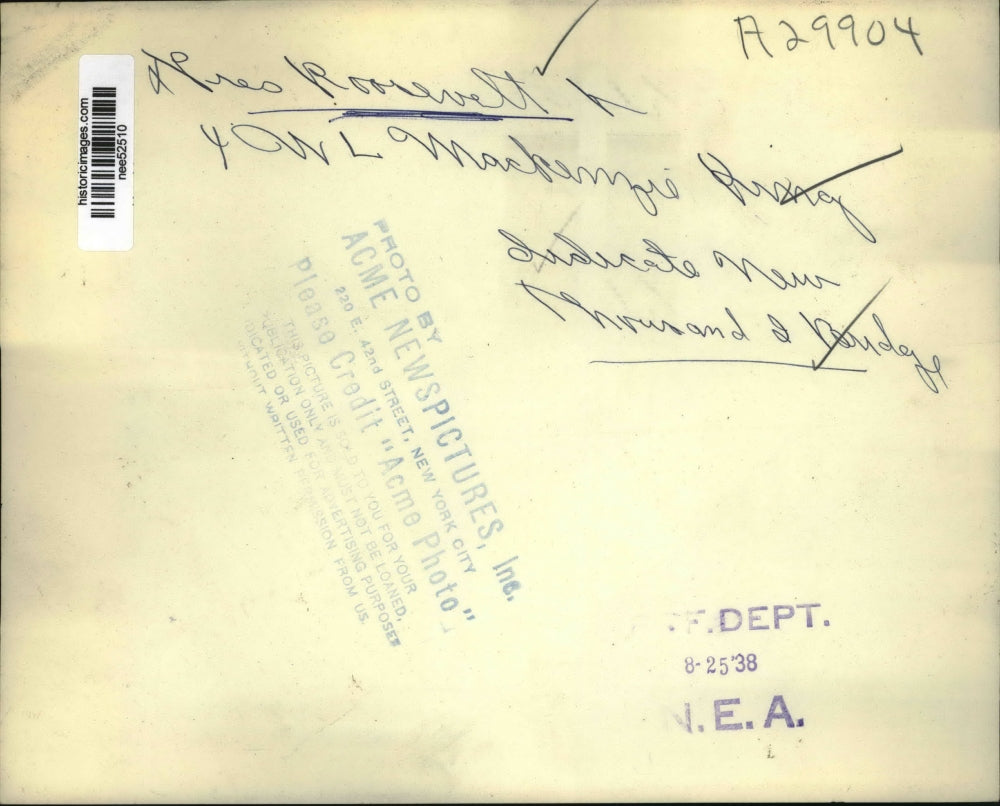 A29904
Pres Roosevelt
& W L Mackenzie King
Dedicate New
Thousand I Bridge
historicimages.com
nee52510
PHOTO BY
ACME NEWSPICTURES, Inc.
220 E. 42nd STREET, NEW YORK CITY
Please Credit "Acme Photo"
THIS PICTURE IS SOLD TO YOU FOR YOUR
PUBLICATION ONLY AND MUST NOT BE LOANED,
DICATED OR USED FOR ADVERTISING PURPOSES
WITHOUT WRITTEN PERMISSION FROM US.
F. DEPT.
8-25'38
N.E.A.